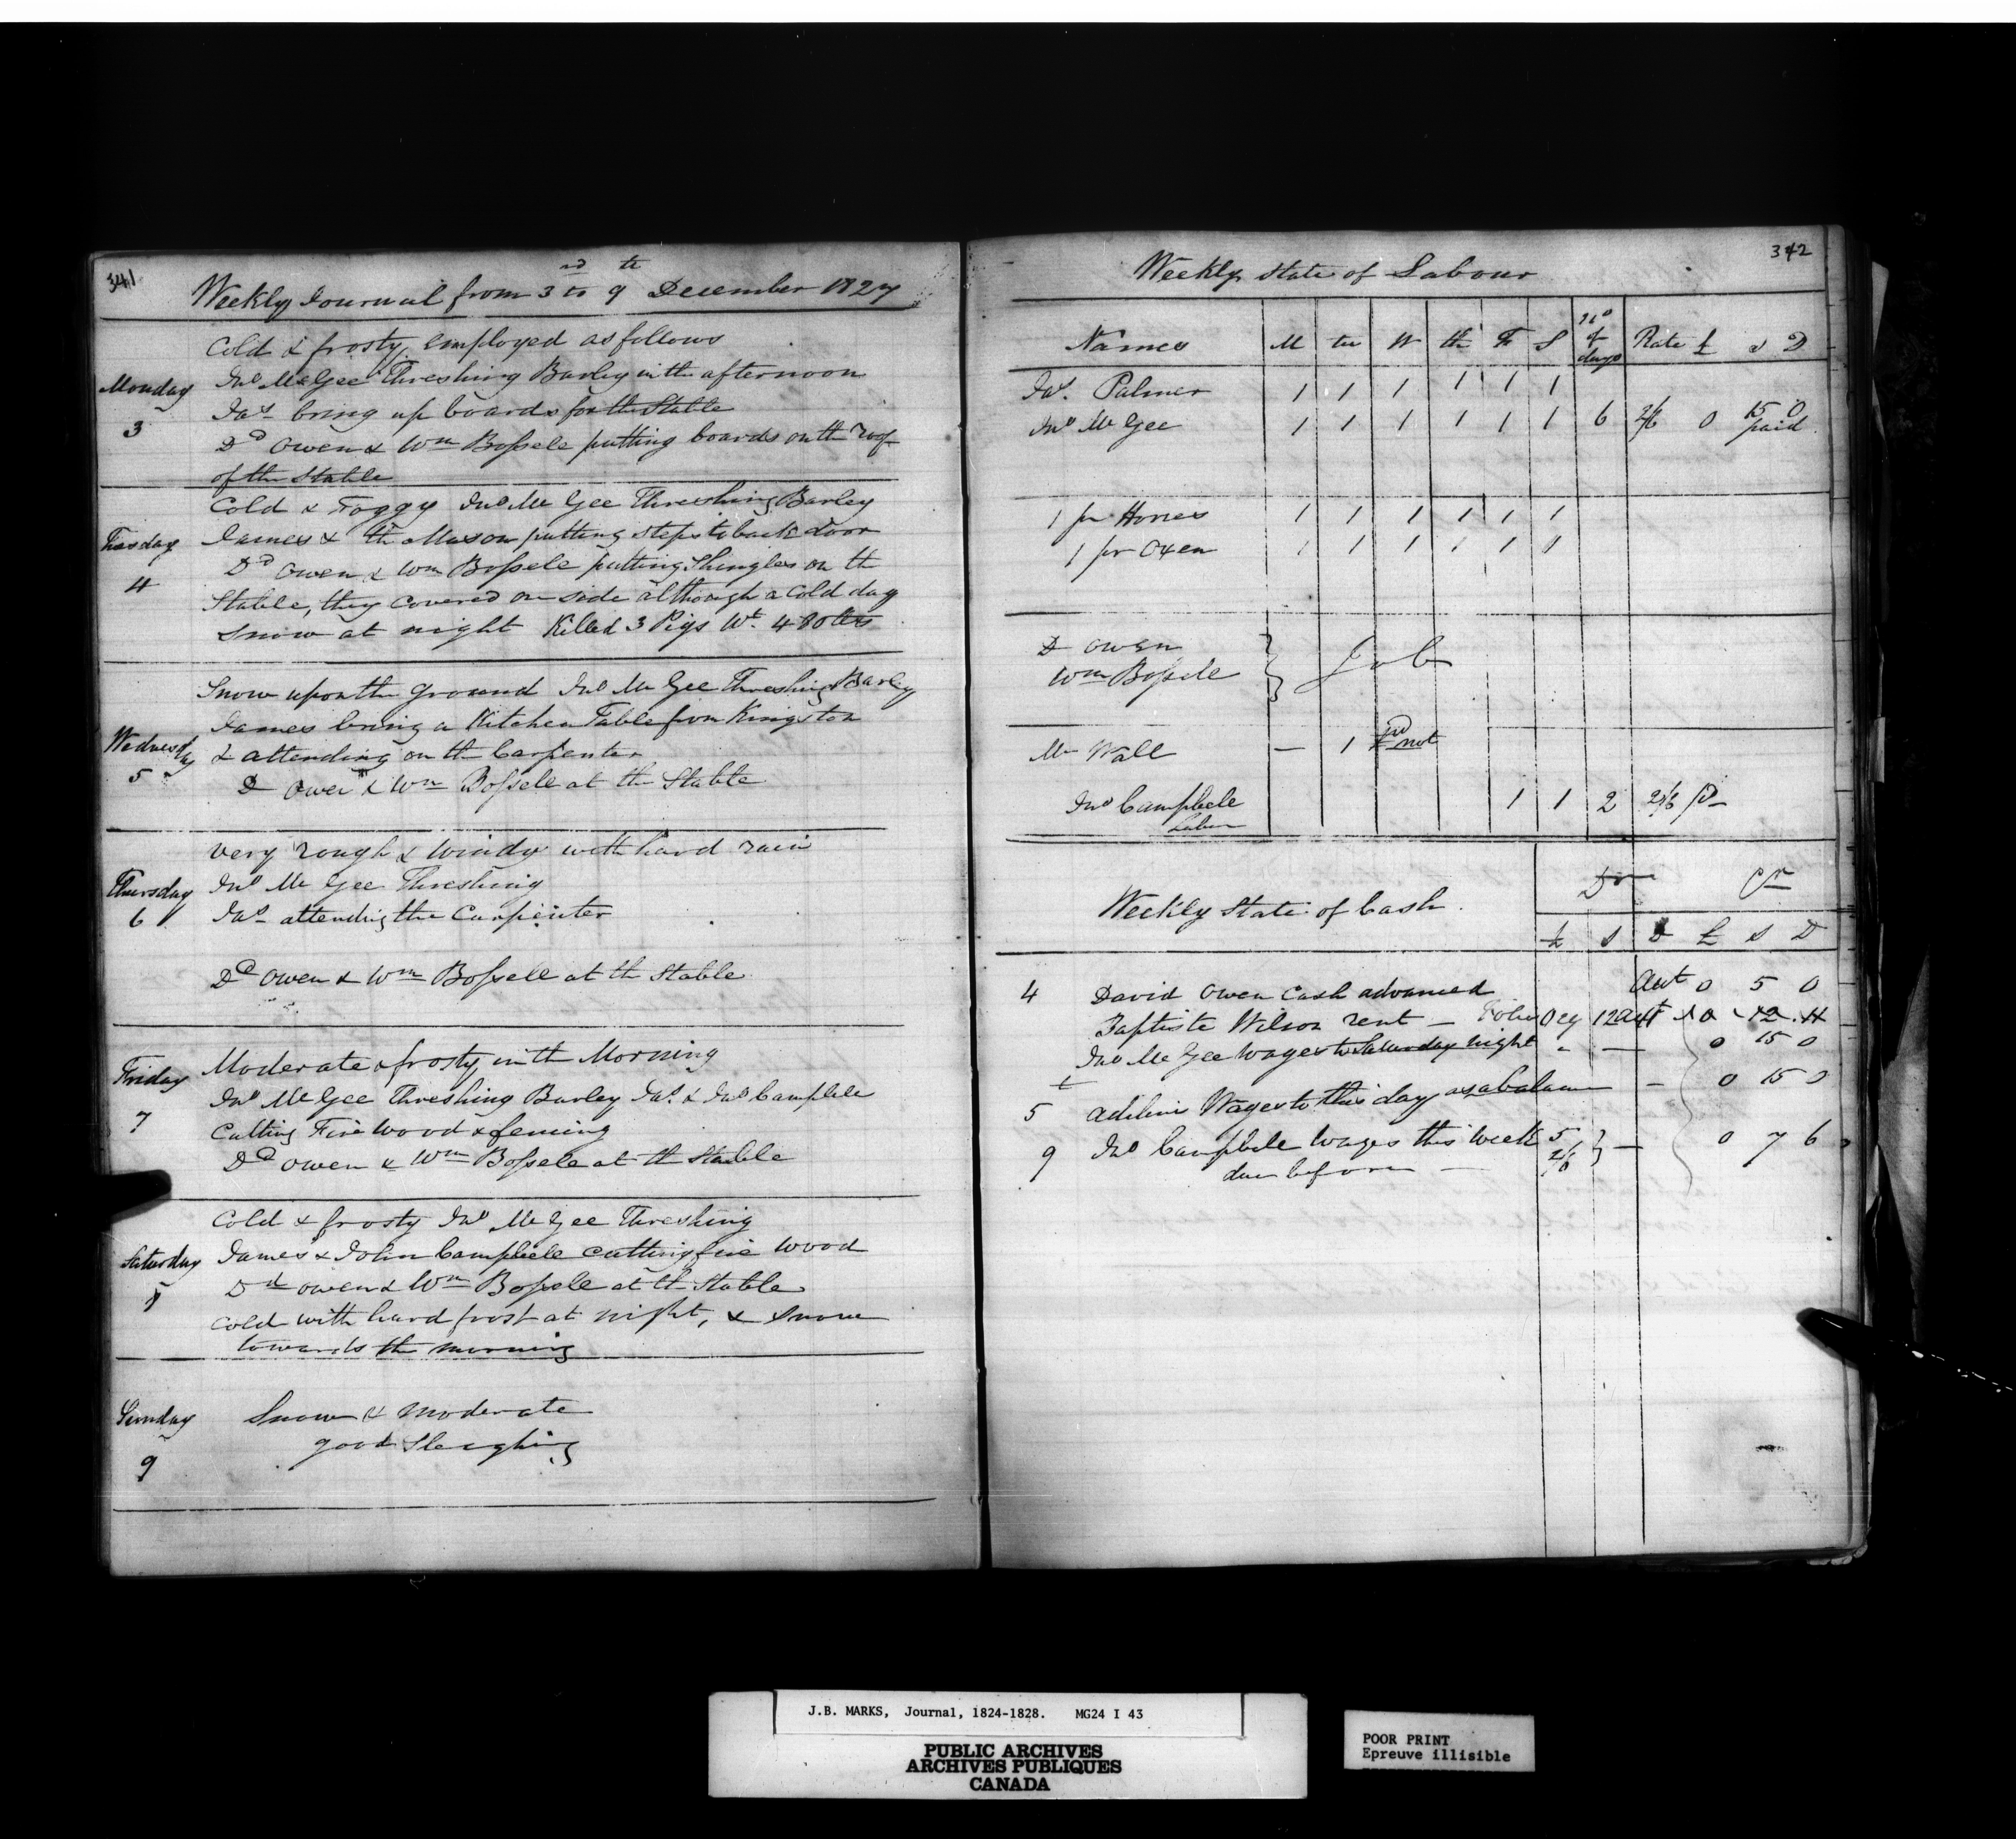 341
Weekly Journal from 3rd to 9th December 1827
Cold & frosty, employed as follows
Monday
3
Jno McGee Threshing Barley in the afternoon
Jas bring up boards for the Stable
Dd Owen & Wm Bossele putting boards on th roof
of the Stable
Tuesday
4
Cold & Foggy Jno Mc Gee Threshing Barley
James & th Mason putting steps to back door
Dd Owen & Wm Bossele putting Shingles on th
Stable, they covered one side although a cold day
Snow at night Killed 3 Pigs Wt. 480 lbs
Wednesday
5
Snow upon the ground Jno Mc Gee Threshing Barley
James bring a Kitchen Table from Kingston
& attending on th Carpenter
D Owen & Wm Bossele at the Stable
Thursday
6
very rough & windy with hard rain
Jno Mc Gee Threshing
Jas attending the Carpenter
Dd Owen & Wm Bossele at th Stable
Friday
7
Moderate & frosty in th Morning
Jno McGee Threshing Barley Jas. & Jno Campbele
Cutting Fire wood & fencing
Dd Owen & Wm Bossele at th Stable
Saturday
8
Cold & frosty Jno Mc Gee Threshing
James & John Campbele cutting fire wood
Dd owen & Wm Bossele at th Stable
Cold with hard frost at night, & snow
towards the morning
Sunday
9
Snow & moderate
good Sleighing
342
Weekly state of Labour
Names M tu W th F S No of days Rate £ s D
Jas. Palmer 1 1 1 1 1 1
Jno Mc Gee 1 1 1 1 1 1 6 2/6 0 15 0
paid
1 pr Horses 1 1 1 1 1 1
1 pr Oxen 1 1 1 1 1 1
D Owen
Wm Bossele } Job
Mr Wall — 1 not
Jno Campbele 1 1 2 2/6 pd
Labour
Weekly State of Cash. Dr Cr
£ s D £ s D
4 David Owen Cash advanced 0 5 0
Baptiste Wilson rent — 12
Jno Mc Gee Wages to Saturday night " — 0 15 0
5 Adeline Wages to this day as a balance — 0 15 0
9 Jno Campbele Wages this week 5 } — 0 7 6
due before — 2/6
J.B. MARKS, Journal, 1824-1828. MG24 I 43
PUBLIC ARCHIVES
ARCHIVES PUBLIQUES
CANADA
POOR PRINT
Epreuve illisible